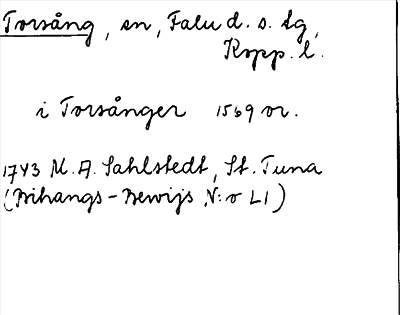 Torsång, en, Falu d. s. tg,
Kopp. l.
i Torsånger 1569 or.
1743 M. A. Sahlstedt, St. Tuna
(Bihangs-Bewijs N:o LI)